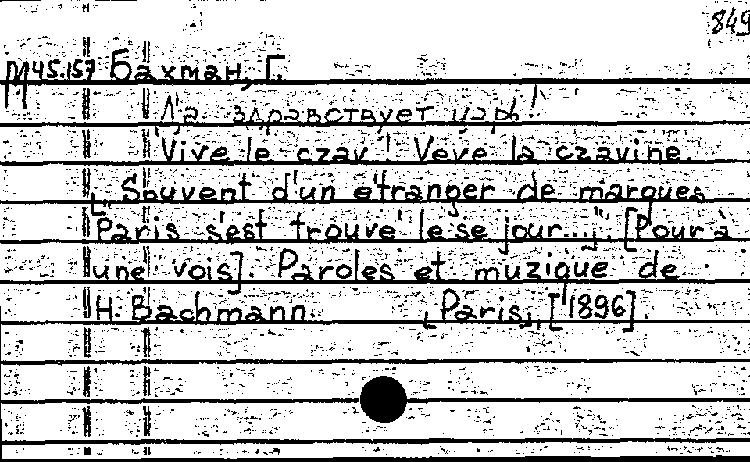 849
М45.157 Бахман, Г.
Да здравствует царь!
Vive le czar! Veve la czarine.
[„Souvent d'un etranger de marques
Paris s'est trouve le se jour...]". [Pour a
une vois]. Paroles et muzique de
H. Bachmann. [Paris], [1896].